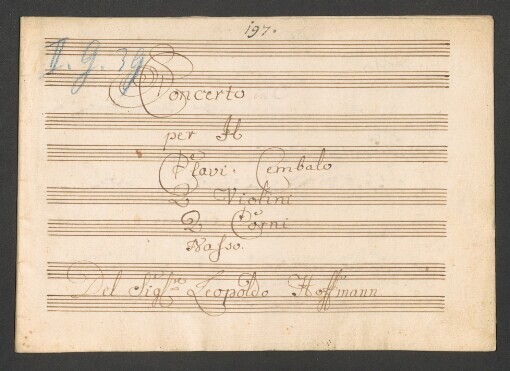 197.
I. g. 39
Concerto
per Il
Clavi. Cembalo
2 Violini
2 Cogni
Basso
Del Sigre Leopoldo Hoffmann